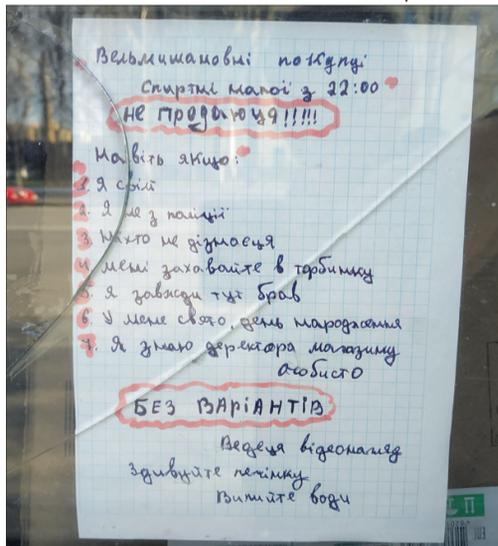 Вельмишановні покупці
Спиртні напої з 22:00
не продаюця!!!!!
Навіть якщо:
1. Я свій
2. Я не з поліції
3. Ніхто не дізнаєця
4. мені заховайте в торбинку
5. Я завжди тут брав
6. У мене свято, день народження
7. Я знаю деректора магазину
особисто
БЕЗ ВАРІАНТІВ
Ведеця відеонагляд
Здивуйте печінку
Випийте води